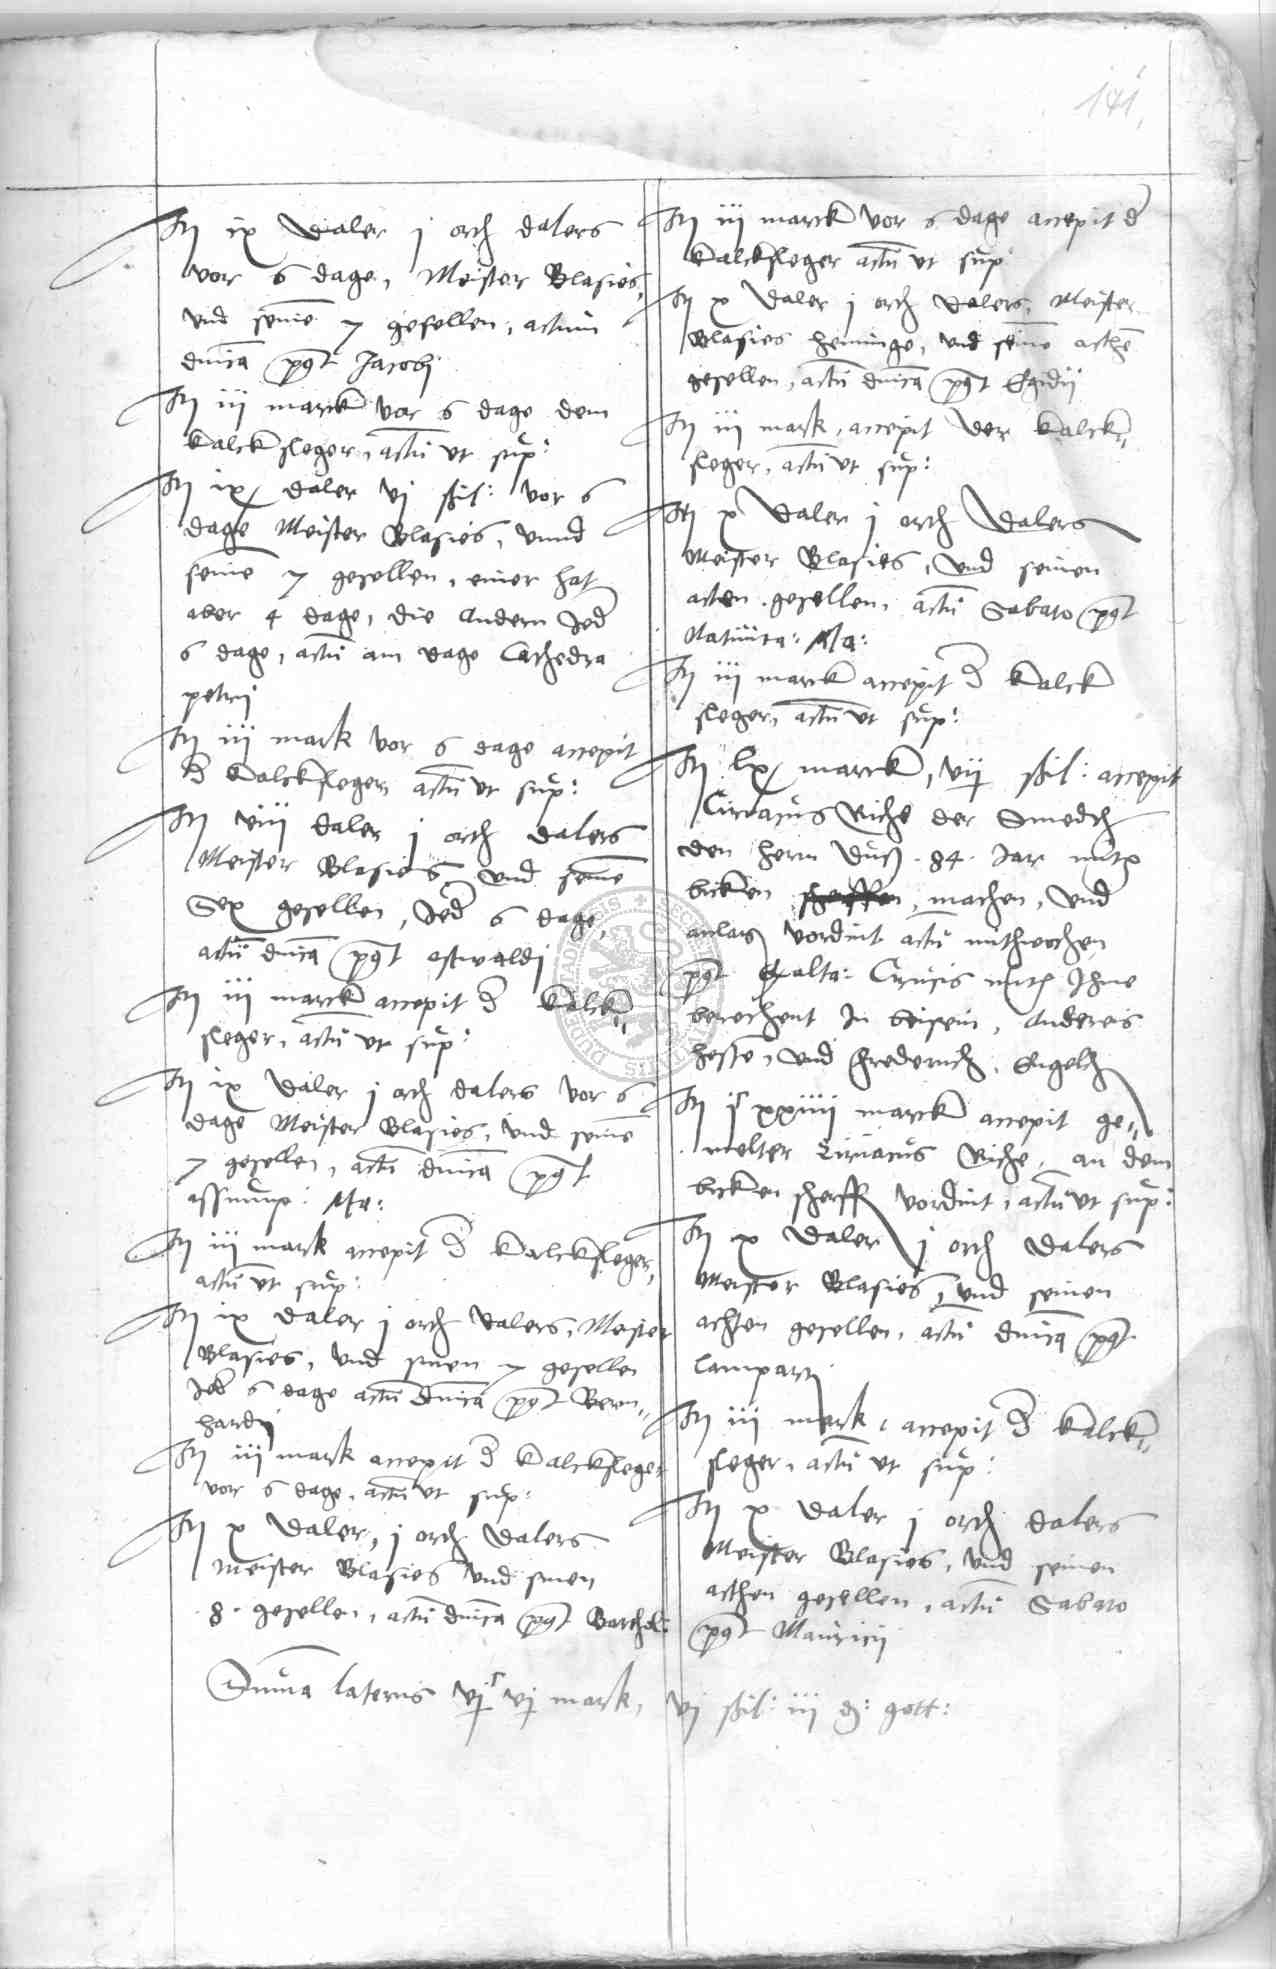 141
It ix daler j orth dalers
vor 6 dage, Meister Blasies,
vnd seine 7 gesellen, actum
dnica post Jacobj
It iij marck vor 6 dage dem
kalckfleger, actu vt sup:
It ix daler vj ßil: vor 6
dage Meister Blasies, vnnd
seine 7 gesellen, einer hat
aber 4 dage, die andern Jed
6 dage, actu am dage Cathedra
petrij
It iij mark vor 6 dage accepit
d kalckfleger actu vt sup:
It viij daler j orth dalers
Meister Blasies vnd seine
Sex gesellen, Jed 6 dage,
actu dnica post oswaldj
It iij marck accepit d kalck„
fleger, actu vt sup:
It ix daler j orth dalers vor 6
dage Meister Blasies, vnd seine
7 gesellen, actu dnica post
assump: Ma:
It iij mark accepit d kalckfleger,
actu vt sup:
It ix daler j orth dalers, Meister
Blasies, vnd sinen 7 gesellen
Jed 6 dage actu dnica post Bern„
hardj
It iij mark accepit d kalckfleger
vor 6 dage, actu vt sup:
It x daler, j orth dalers
Meister Blasies vnd sinen
8 gesellen, actu dnica post Barthol:
It iij marck vor 6 dage accepit d
kalckfleger actu vt sup:
It x daler j orth dalers, Meister
Blasies henninge, vnd seine acthe
gesellen, actu dnica post Egidij
It iij mark, accepit der kalck„
fleger, actu vt sup:
It x daler j orth dalers
Meister Blasies, vnd seinen
acten gesellen, actu Sabato post
Natiuita: Ma:
It iij marck accepit d kalck
fleger, actu vt sup:
It lx marck, vij ßil: accepit
Ciriacus Riche der Smedth
den hern duß 84 Jar mith
bicken machen, vnd
anlaß vordint actu mithwochen
post Exalta: Crucis mith Ihme
berechent in beisein, Andereis
hesse, vnd Frederich, Engelth
It jc xxiiij marck accepit ge„
melter Ciriacus Riche, an dem
bicken scherff vordint, actu vt sup:
It x daler j orth dalers
Meister Blasies, vnd seinen
achten gesellen, actu dnica post
Lamparti
It iij mark, accepit d kalck„
fleger, actu vt sup:
It x daler j orth dalers
Meister Blasies, vnd seinen
acthen gesellen, actu Sabato
post Mauricij
Summa lateris vjc vj mark, vj ßil: iij d: gott: